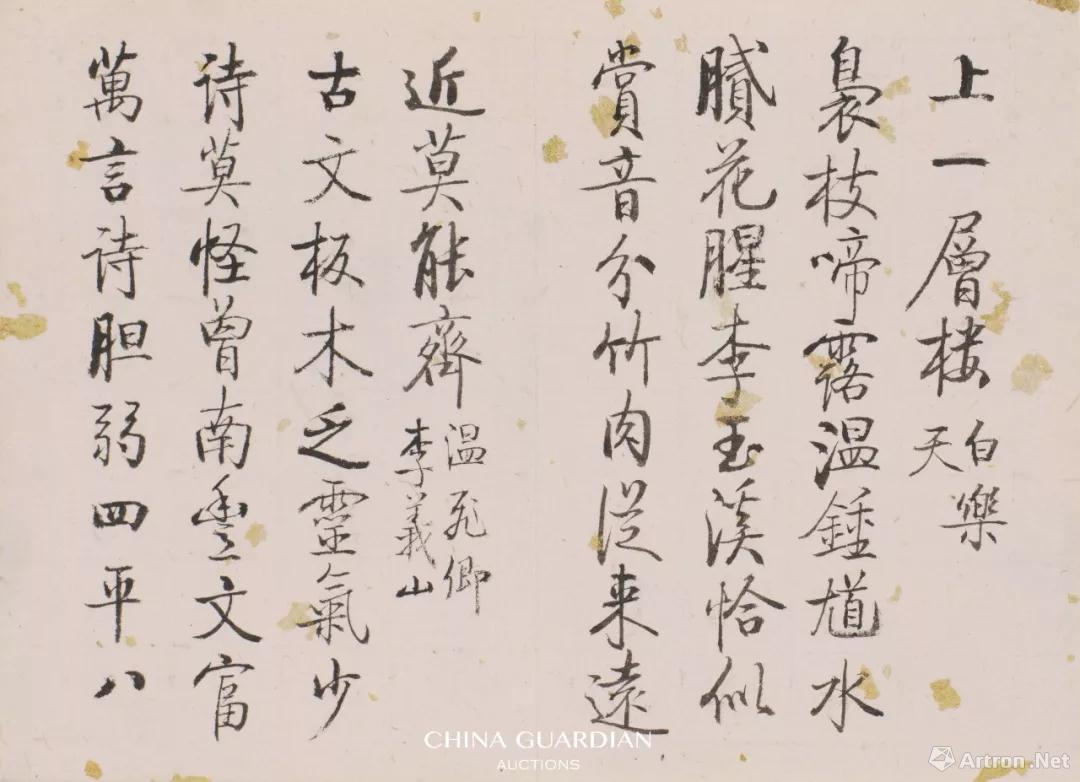 上一層楼 白樂天
裊枝啼露温鍾馗水
膩花腥李玉溪恰似
賞音分竹肉從来遠
近莫能齊 温飛卿 李義山
古文板木乏靈氣少
诗莫怪曾南豊文富
萬言诗胆弱四平八
CHINA GUARDIAN
AUCTIONS
Artron.Net